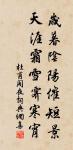 歲暮陰陽催短景
天涯霜雪霽寒宵
杜甫閣夜詞典網書